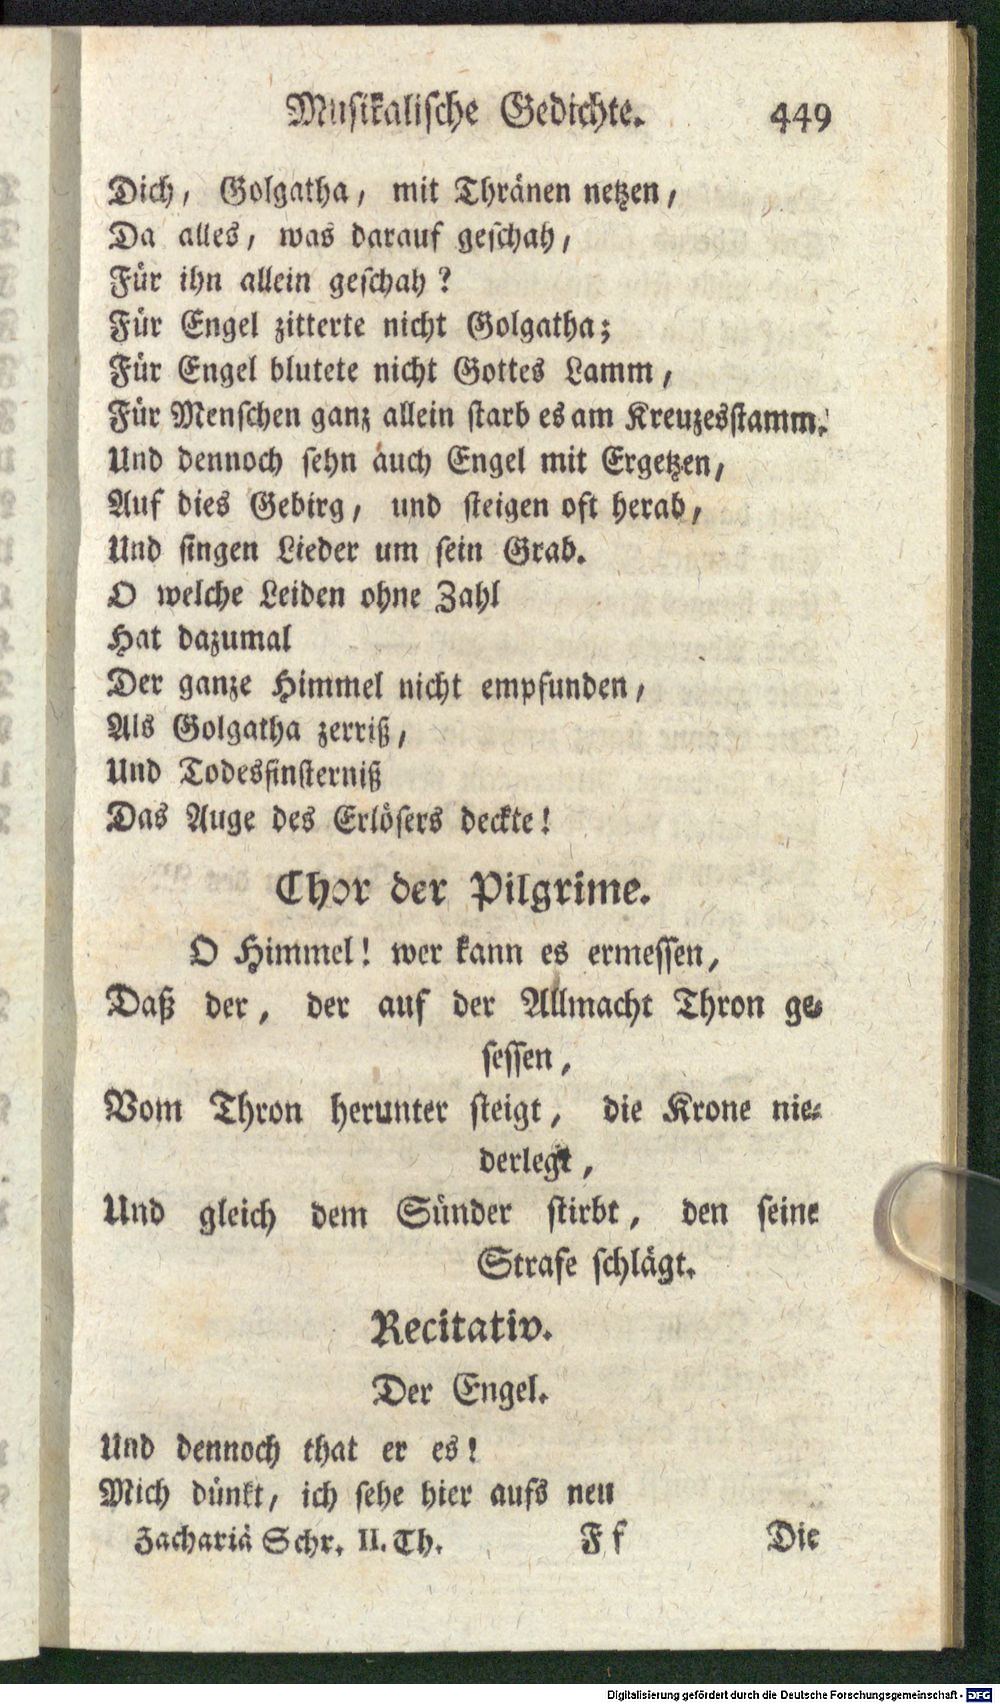 Muſikaliſche Gedichte. 449
Dich, Golgatha, mit Thränen netzen,
Da alles, was darauf geſchah,
Für ihn allein geſchah?
Für Engel zitterte nicht Golgatha;
Für Engel blutete nicht Gottes Lamm,
Für Menſchen ganz allein ſtarb es am Kreuzesſtamm.
Und dennoch ſehn auch Engel mit Ergetzen,
Auf dies Gebirg, und ſteigen oft herab,
Und ſingen Lieder um ſein Grab.
O welche Leiden ohne Zahl
Hat dazumal
Der ganze Himmel nicht empfunden,
Als Golgatha zerriß,
Und Todesfinſterniß
Das Auge des Erlöſers deckte!
Chor der Pilgrime.
O Himmel! wer kann es ermeſſen,
Daß der, der auf der Allmacht Thron ge-
ſeſſen,
Vom Thron herunter ſteigt, die Krone nie-
derlegt,
Und gleich dem Sünder ſtirbt, den ſeine
Strafe ſchlägt.
Recitativ.
Der Engel.
Und dennoch that er es!
Mich dünkt, ich ſehe hier aufs neu
Zachariä Schr. II. Th. F f Die
Digitalisierung gefördert durch die Deutsche Forschungsgemeinschaft - DFG